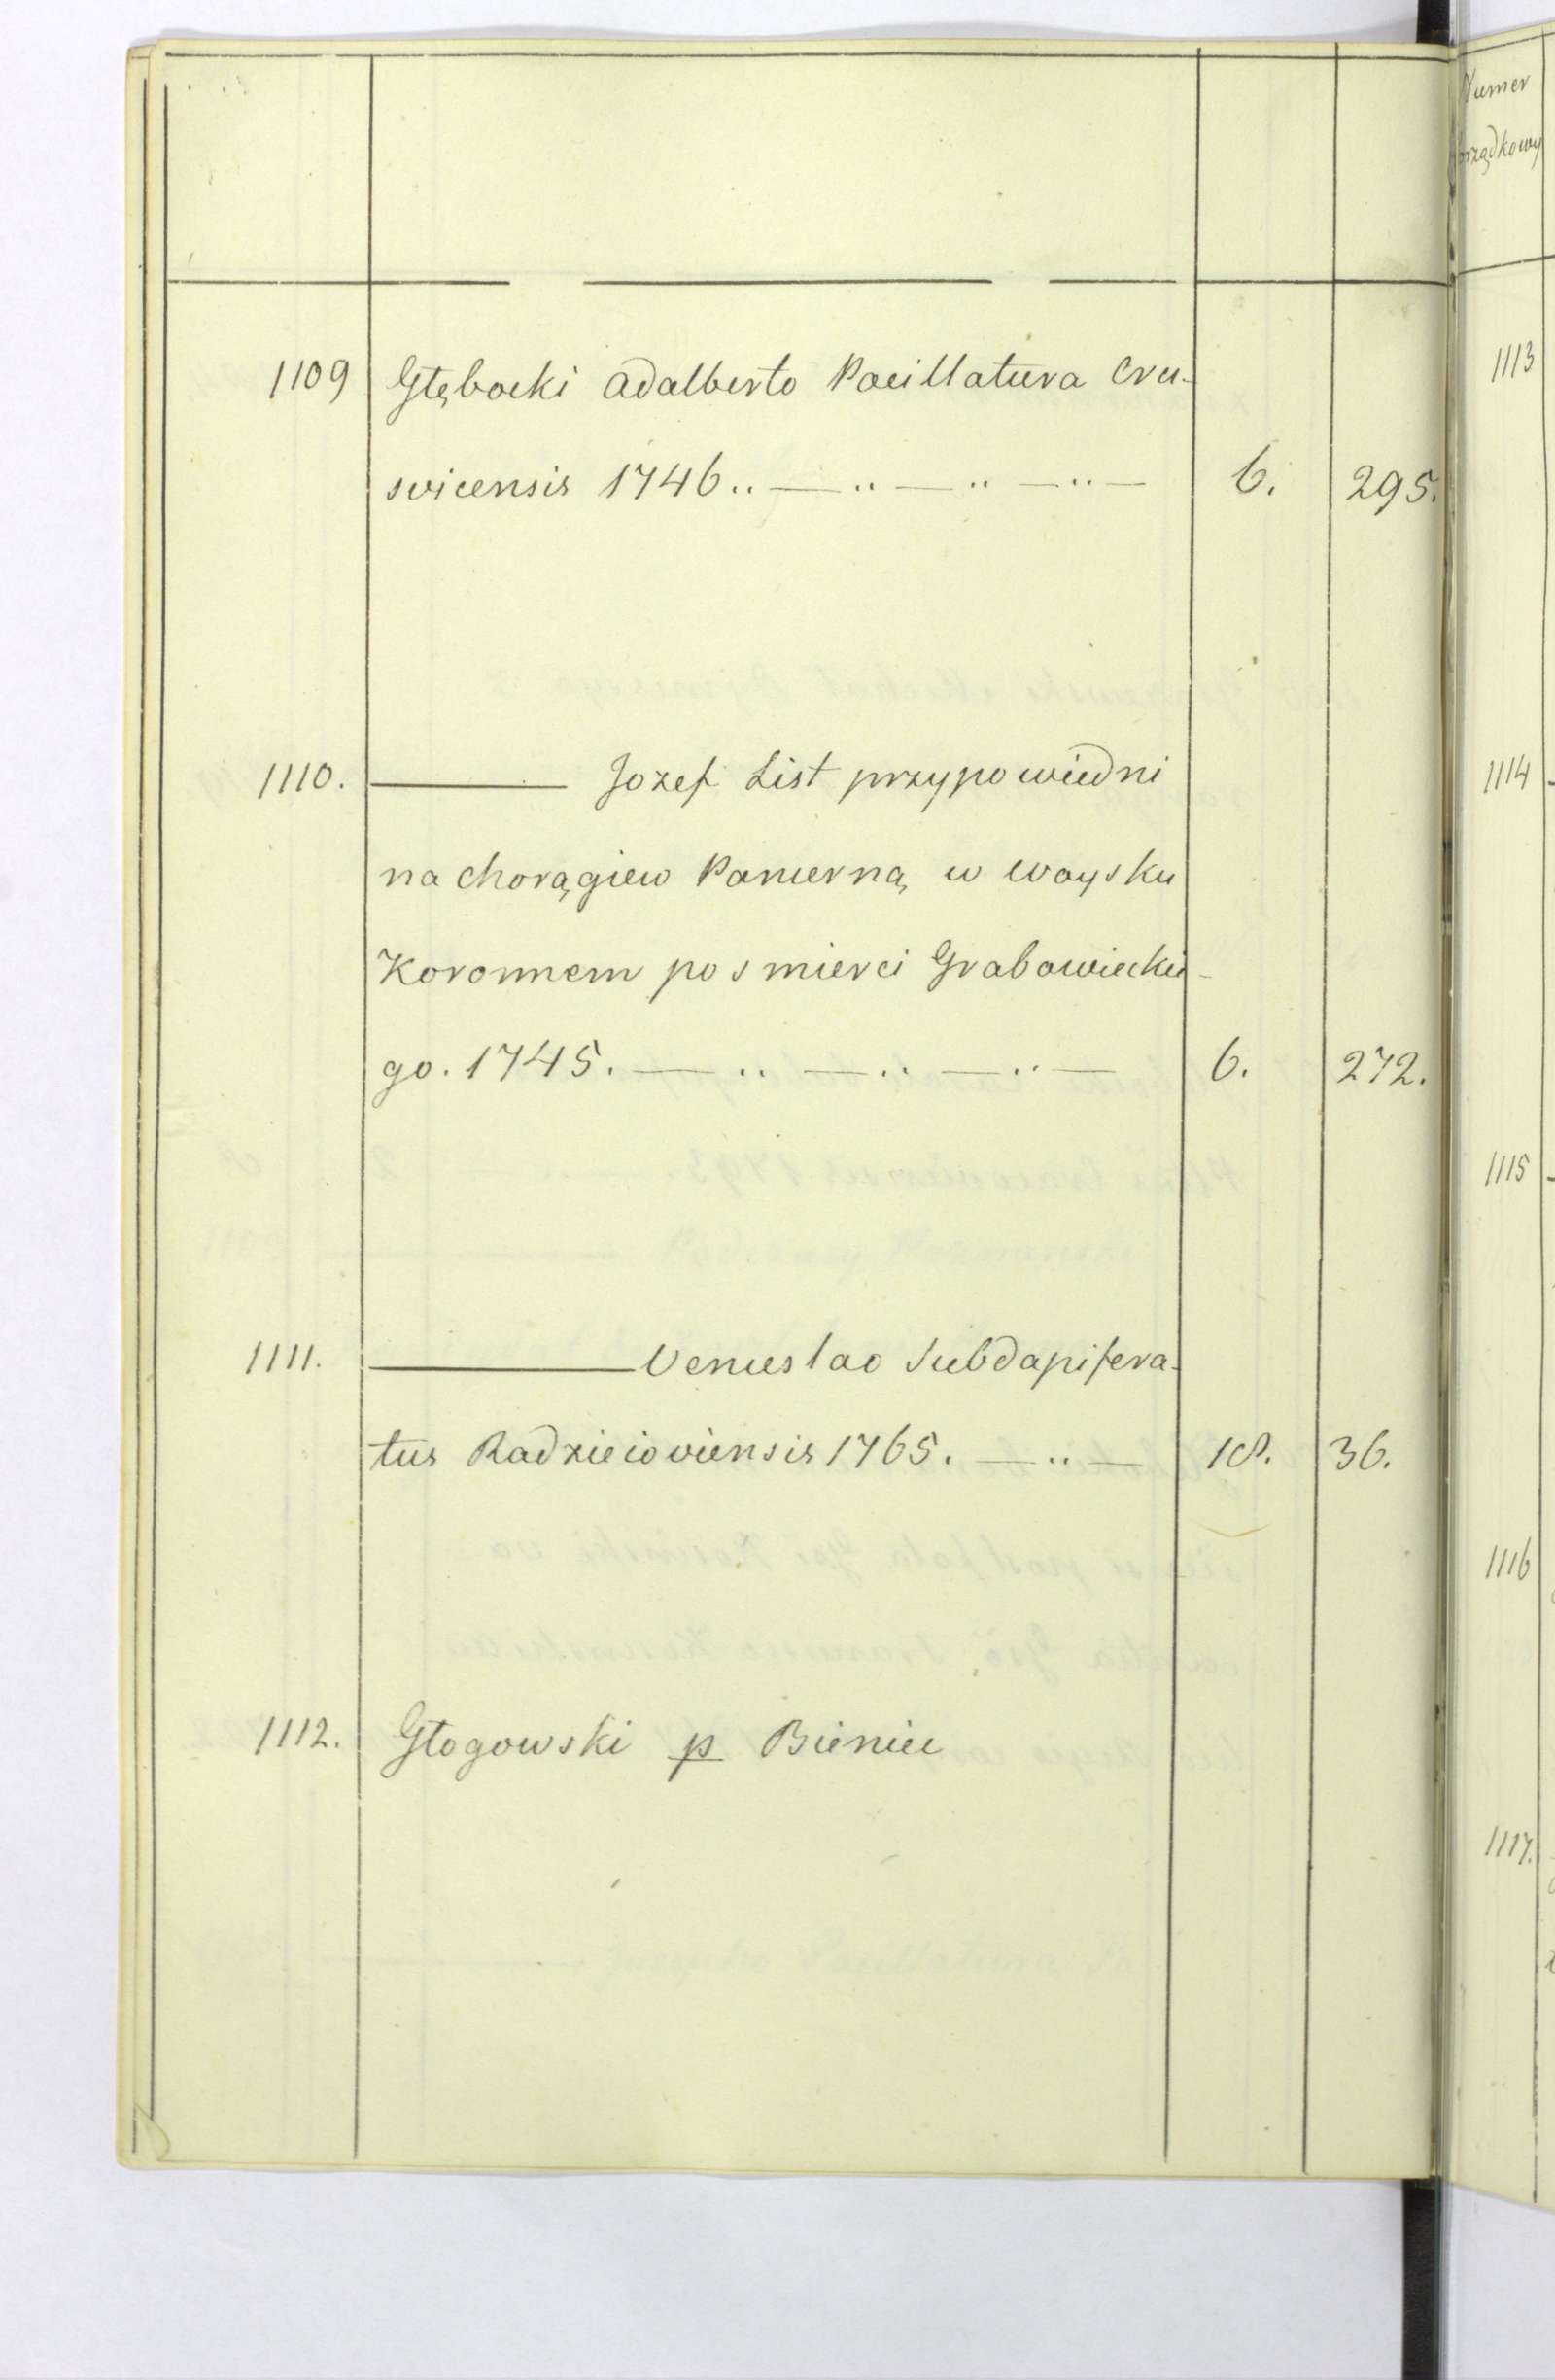 1109 Głębocki Adalberto Pocillatura Cru-
svicensis 1746..—..—..—..— 6. 295.
1110. ——— Jozef List przypowiedni
na chorągiew Pancerną w woysku
Koronnem po smierci Grabowieckie-
go. 1745.—..—..—..— 6. 272.
1111. ——— Venceslao Subdapifera-
tus Radzieioviensis 1765. —..— 18. 36.
1112. Głogowski p Bieniec
Numer
porządkowy
1113
1114
1115
1116
1117.